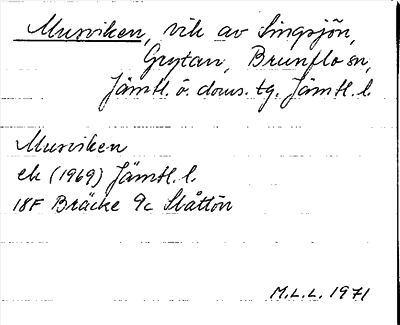 Murviken, vik av Singsjön,
Grytan, Brunflo sn,
Jämtl. ö. doms. tg. Jämtl. l.
Murviken
ek (1969) Jämtl. l.
18F Bräcke 9c Slåttön
M.L.L. 1971